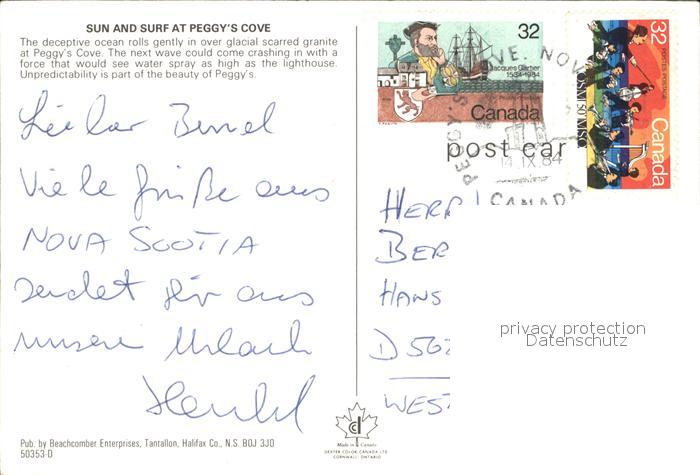 SUN AND SURF AT PEGGY'S COVE
The deceptive ocean rolls gently in over glacial scarred granite
at Peggy's Cove. The next wave could come crashing in with a
force that would see water spray as high as the lighthouse.
Unpredictability is part of the beauty of Peggy's.
Viele Grüße aus
NOVA SCOTIA
sendet Dir aus
unserem Urlaub
Pub. by Beachcomber Enterprises, Tantallon, Halifax Co., N.S. B0J 3J0
50353-D
32
Jacques Cartier
1534-1984
Canada
32
POSTES-POSTAGE
Canada
PEGGY'S COVE NOVA
14 IX 84
CANADA
post car
HERR
BER
HANS
D 562
WEST
privacy protection
Datenschutz
Made in Canada
DEXTER COLOR CANADA LTD.
CORNWALL, ONTARIO